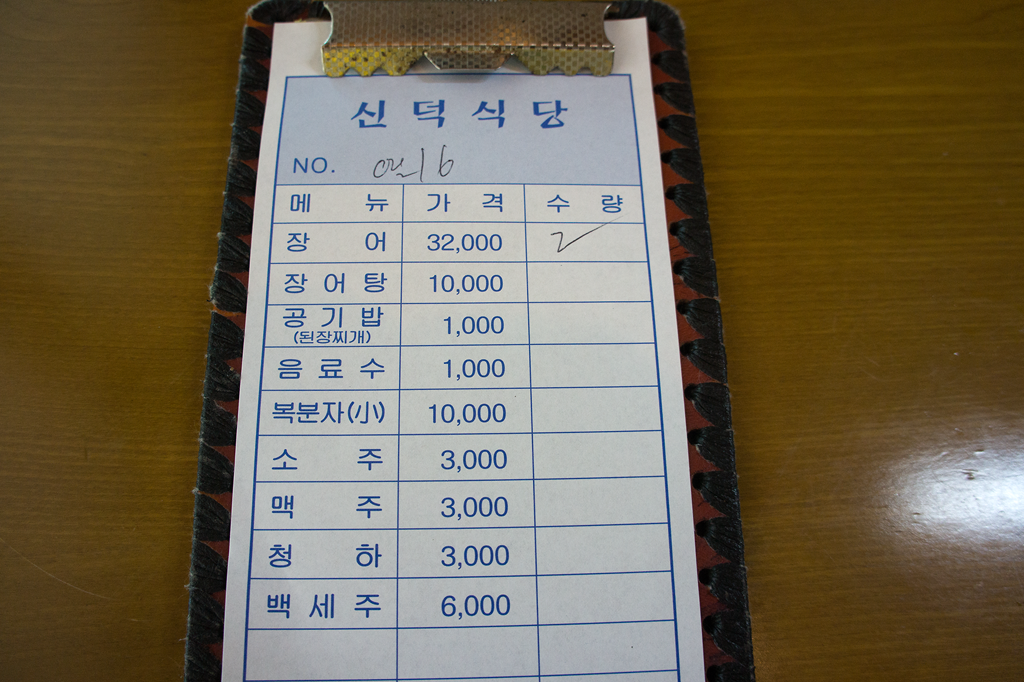 신덕식당
NO. 16
메뉴 가격 수량
장어 32,000 2
장어탕 10,000
공기밥 1,000
(된장찌개)
음료수 1,000
복분자(小) 10,000
소주 3,000
맥주 3,000
청하 3,000
백세주 6,000